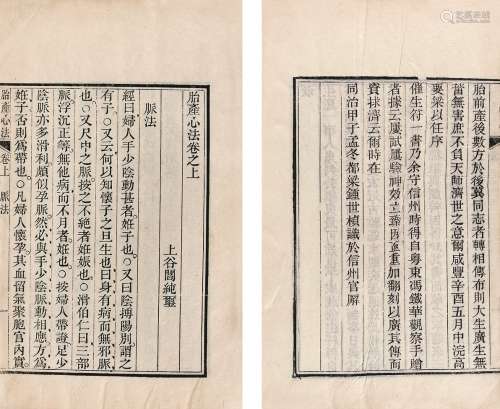 胎前產後數方於後冀同志者轉相傳布則大生廣生無
菑無害庶不負天師濟世之意爾咸豐辛酉五月中浣高
要梁以任序
催生符一書乃余守信州時得自粵東馮鐵華觀察手贈
者據云屢試屢驗神效立應因亟重加翻刻以廣其傳而
資拯濟云爾時在
同治甲子孟冬都梁鍾世楨識於信州官廨
胎產心法卷之上
上谷閻純璽
脈法
經曰婦人手少陰動甚者姙子也○又曰陰搏陽別謂之
有子○又曰何以知懷子之且生也曰身有病而無邪脈
也○又尺中之脈按之不絕者姙娠也○滑伯仁曰三部
脈浮沉正等無他病而不月者姙也○按婦人帶證足少
陰脈亦多滑利頗似孕脈然必與手少陰脈動相應方為
姙子否則為帶也○凡婦人懷孕其血留氣聚胞宮內實
胎產心法 卷上 脈法